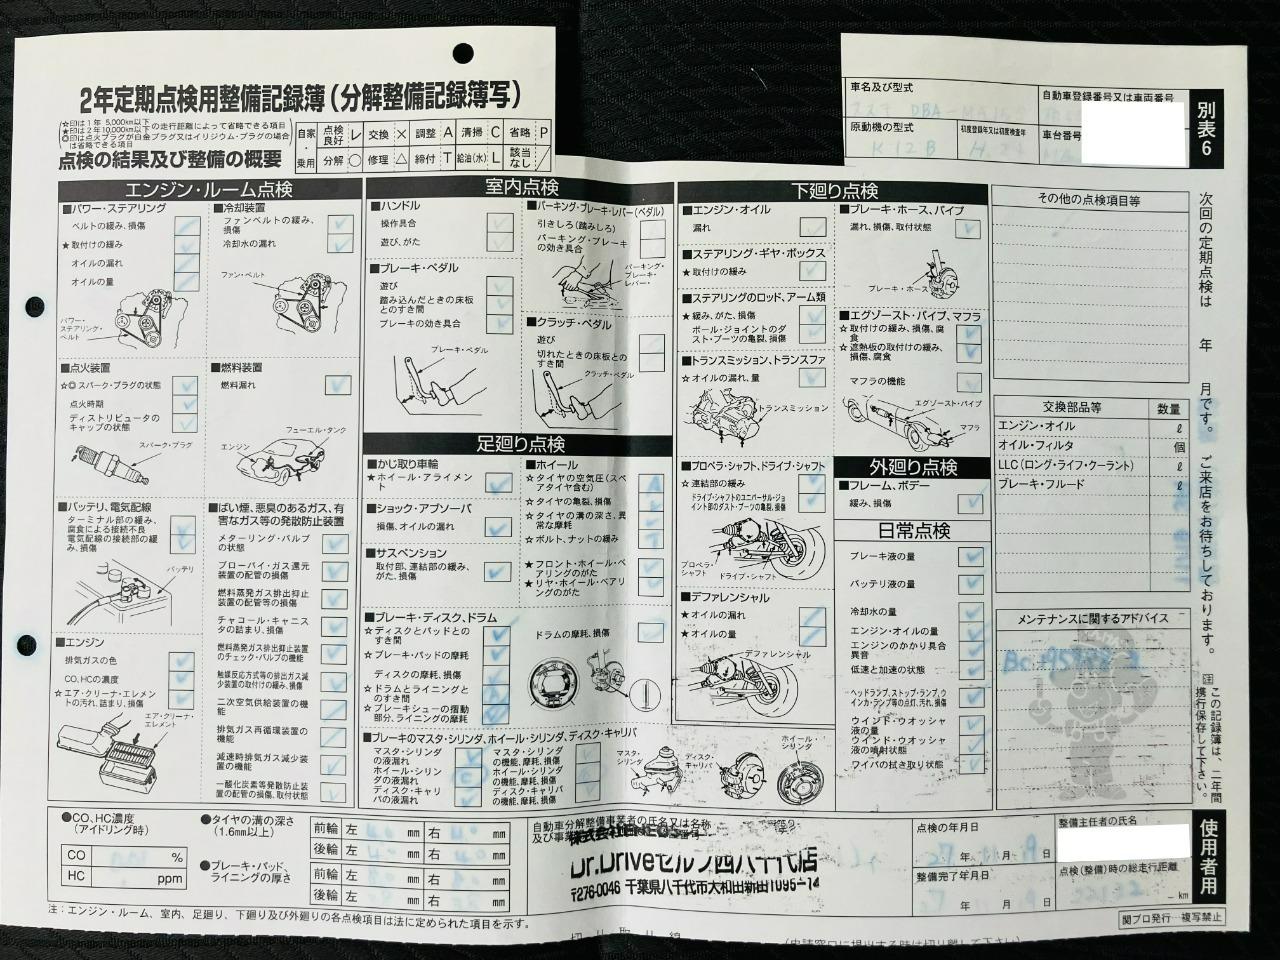 2年定期点検用整備記録簿(分解整備記録簿写)
☆印は1年 5,000km以下
★印は2年10,000km以下の走行距離によって省略できる項目
◎印は点火プラグが白金プラグ又はイリジウム・プラグの場合は省略できる項目
点検の結果及び整備の概要
自家・乗用
点検良好 レ 交換 × 調整 A 清掃 C 省略 P
分解 ○ 修理 △ 締付 T 給油(水) L 該当なし /
車名及び型式
スズキ DBA-
自動車登録番号又は車両番号
原動機の型式
K12B
初度登録年又は初度検査年
車台番号
別表6
エンジン・ルーム点検
■パワー・ステアリング
ベルトの緩み、損傷
★取付けの緩み
オイルの漏れ
オイルの量
パワー・ステアリング・ベルト
■冷却装置
ファンベルトの緩み、損傷
冷却水の漏れ
ファン・ベルト
■点火装置
☆◎スパーク・プラグの状態
点火時期
ディストリビュータのキャップの状態
スパーク・プラグ
■燃料装置
燃料漏れ
フューエル・タンク
エンジン
■バッテリ、電気配線
ターミナル部の緩み、腐食による接続不良
電気配線の接続部の緩み、損傷
バッテリ
■エンジン
排気ガスの色
CO、HCの濃度
☆エア・クリーナ・エレメントの汚れ、詰まり、損傷
エア・クリーナ・エレメント
■ばい煙、悪臭のあるガス、有害なガス等の発散防止装置
メターリング・バルブの状態
ブローバイ・ガス還元装置の配管の損傷
燃料蒸発ガス排出抑止装置の配管等の損傷
チャコール・キャニスタの詰まり、損傷
燃料蒸発ガス排出抑止装置のチェック・バルブの機能
触媒反応方式等の排出ガス減少装置の取付けの緩み、損傷
二次空気供給装置の機能
排気ガス再循環装置の機能
減速時排気ガス減少装置の機能
一酸化炭素等発散防止装置の配管の損傷、取付状態
室内点検
■ハンドル
操作具合
遊び、がた
■ブレーキ・ペダル
遊び
踏み込んだときの床板とのすき間
ブレーキの効き具合
ブレーキ・ペダル
■パーキング・ブレーキ・レバー(ペダル)
引きしろ(踏みしろ)
パーキング・ブレーキの効き具合
パーキング・ブレーキ・レバー
■クラッチ・ペダル
遊び
切れたときの床板とのすき間
クラッチ・ペダル
足廻り点検
■かじ取り車輪
★ホイール・アライメント
■ショック・アブソーバ
損傷、オイルの漏れ
■サスペンション
取付部、連結部の緩み、がた、損傷
■ホイール
☆タイヤの空気圧(スペアタイヤ含む)
☆タイヤの亀裂、損傷
☆タイヤの溝の深さ、異常な摩耗
☆ボルト、ナットの緩み
★フロント・ホイール・ベアリングのがた
★リヤ・ホイール・ベアリングのがた
■ブレーキ・ディスク、ドラム
☆ディスクとパッドとのすき間
☆ブレーキ・パッドの摩耗
ディスクの摩耗、損傷
☆ドラムとライニングとのすき間
☆ブレーキシューの摺動部分、ライニングの摩耗
ドラムの摩耗、損傷
■ブレーキのマスタ・シリンダ、ホイール・シリンダ、ディスク・キャリパ
マスタ・シリンダの液漏れ
ホイール・シリンダの液漏れ
ディスク・キャリパの液漏れ
マスタ・シリンダの機能、摩耗、損傷
ホイール・シリンダの機能、摩耗、損傷
ディスク・キャリパの機能、摩耗、損傷
マスタ・シリンダ
ディスク・キャリパ
ホイール・シリンダ
下廻り点検
■エンジン・オイル
漏れ
■ステアリング・ギヤ・ボックス
★取付けの緩み
■ステアリングのロッド、アーム類
★緩み、がた、損傷
ボール・ジョイントのダスト・ブーツの亀裂、損傷
■トランスミッション、トランスファ
☆オイルの漏れ、量
トランスミッション
■プロペラ・シャフト、ドライブ・シャフト
☆連結部の緩み
ドライブ・シャフトのユニバーサル・ジョイント部のダスト・ブーツの亀裂、損傷
プロペラ・シャフト
ドライブ・シャフト
■デファレンシャル
★オイルの漏れ
★オイルの量
デファレンシャル
■ブレーキ・ホース、パイプ
漏れ、損傷、取付状態
ブレーキ・ホース
■エグゾースト・パイプ、マフラ
☆取付けの緩み、損傷、腐食
☆遮熱板の取付けの緩み、損傷、腐食
マフラの機能
エグゾースト・パイプ
マフラ
外廻り点検
■フレーム、ボデー
緩み、損傷
日常点検
ブレーキ液の量
バッテリ液の量
冷却水の量
エンジン・オイルの量
エンジンのかかり具合異音
低速と加速の状態
ヘッドランプ、ストップ・ランプ、ウインカ・ランプ等の点灯、汚れ、損傷
ウインド・ウオッシャ液の量
ウインド・ウオッシャ液の噴射状態
ワイパの拭き取り状態
その他の点検項目等
交換部品等 数量
エンジン・オイル ℓ
オイル・フィルタ 個
LLC(ロング・ライフ・クーラント) ℓ
ブレーキ・フルード ℓ
メンテナンスに関するアドバイス
次回の定期点検は 年 月です。ご来店をお待ちしております。
注 この記録簿は、二年間携行保存して下さい。
使用者用
●CO、HC濃度(アイドリング時)
CO %
HC ppm
●タイヤの溝の深さ(1.6mm以上)
前輪 左 mm 右 mm
後輪 左 mm 右 mm
●ブレーキ・パッド、ライニングの厚さ
前輪 左 mm 右 mm
後輪 左 mm 右 mm
自動車分解整備事業者の氏名又は名称
株式会社ENEOS
Dr.Driveセルフ西八千代店
〒276-0046 千葉県八千代市大和田新田1095-14
点検の年月日
27年 月 9日
整備完了年月日
27年 月 9日
整備主任者の氏名
点検(整備)時の総走行距離
km
注:エンジン・ルーム、室内、足廻り、下廻り及び外廻りの各点検項目は法に定められた項目を示す。
関ブロ発行 複写禁止
切り取り線